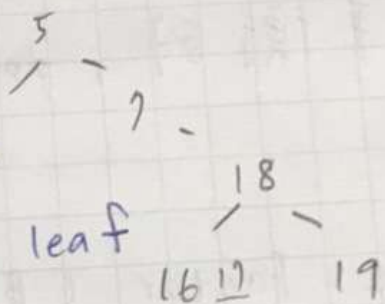 5
7
18
leaf
16 17 19